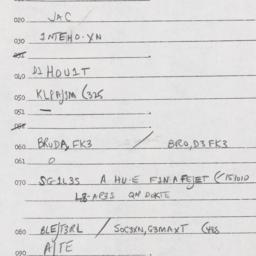 020 JAC
030 INTEHO·XN
031
040 D1 HOU1T
050 KLPA/SM (325
051 —
060 BRUDA, FK3 / BRO, D3 FK3
061 0
070 SG·1L35 A HU·E F1N·AFEJET (15/010
L8-AR31 QN DOKTE
080 BLE/T3RL / SOC3XN, G3MAXT (48S
090 A/TE